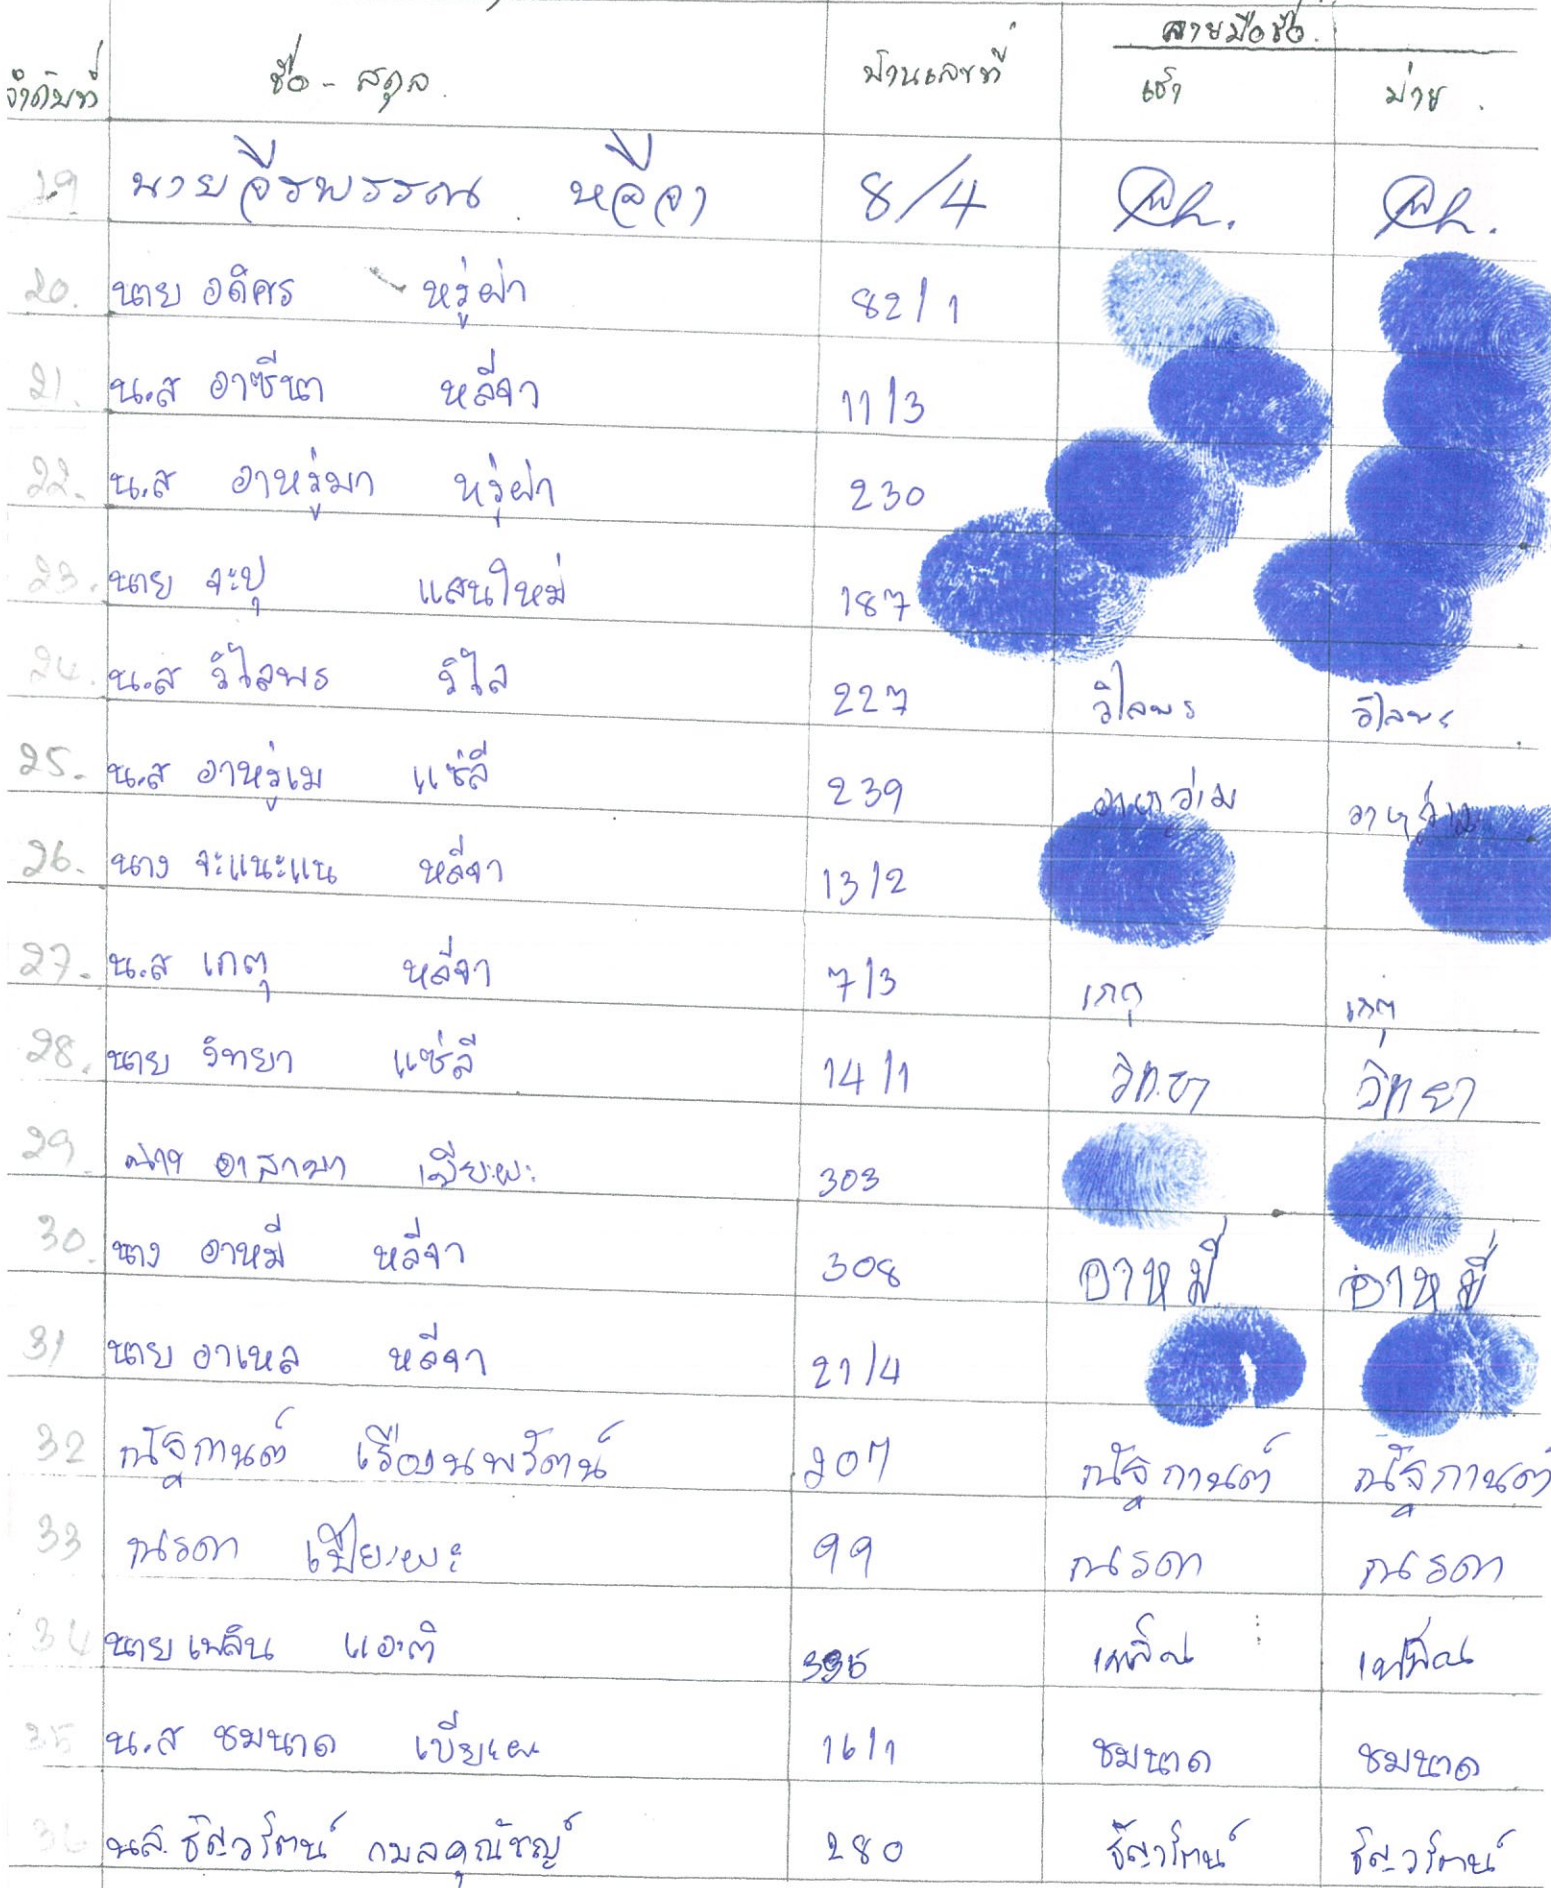 ลายมือชื่อ.
ลำดับที่ ชื่อ - สกุล. บ้านเลขที่ เช้า บ่าย.
19 นายจีรพรรณ หลีจา 8/4
20. นาย อดิศร หรู่ผ่า 82/1
21. น.ส อาซีนา หลี่จา 11/3
22. น.ส อาหรู่มา หรู่ผ่า 230
23. นาย จะปุ แสนใหม่ 187
24. น.ส วิไลพร วิไล 227 วิไลพร วิไลพร
25. น.ส อาหรู่เม แซ่ลี 239
26. นาง จะแนะแน หลี่จา 13/2
27. น.ส เกตุ หลี่จา 7/3 เกตุ เกตุ
28. นาย วิทยา แซ่ลี 14/1 วิทยา วิทยา
29. นาง อาสามา 303
30. นาง อาหมี่ หลี่จา 308 อาหมี่ อาหมี่
31 นาย อาเหล หลี่จา 21/4
32 ณัฐกานต์ เรืองนพรัตน์ 207 ณัฐกานต์ ณัฐกานต์
33 ณรดา เบียเผะ 99 ณรดา ณรดา
34 นาย เพลิน แอะติ เพลิน เพลิน
35 น.ส ชมนาด เบียเผะ 16/1 ชมนาด ชมนาด
36 นส. ธัญวรัตน์ กมลคุณัชญ์ 280 ธัญวรัตน์ ธัญวรัตน์